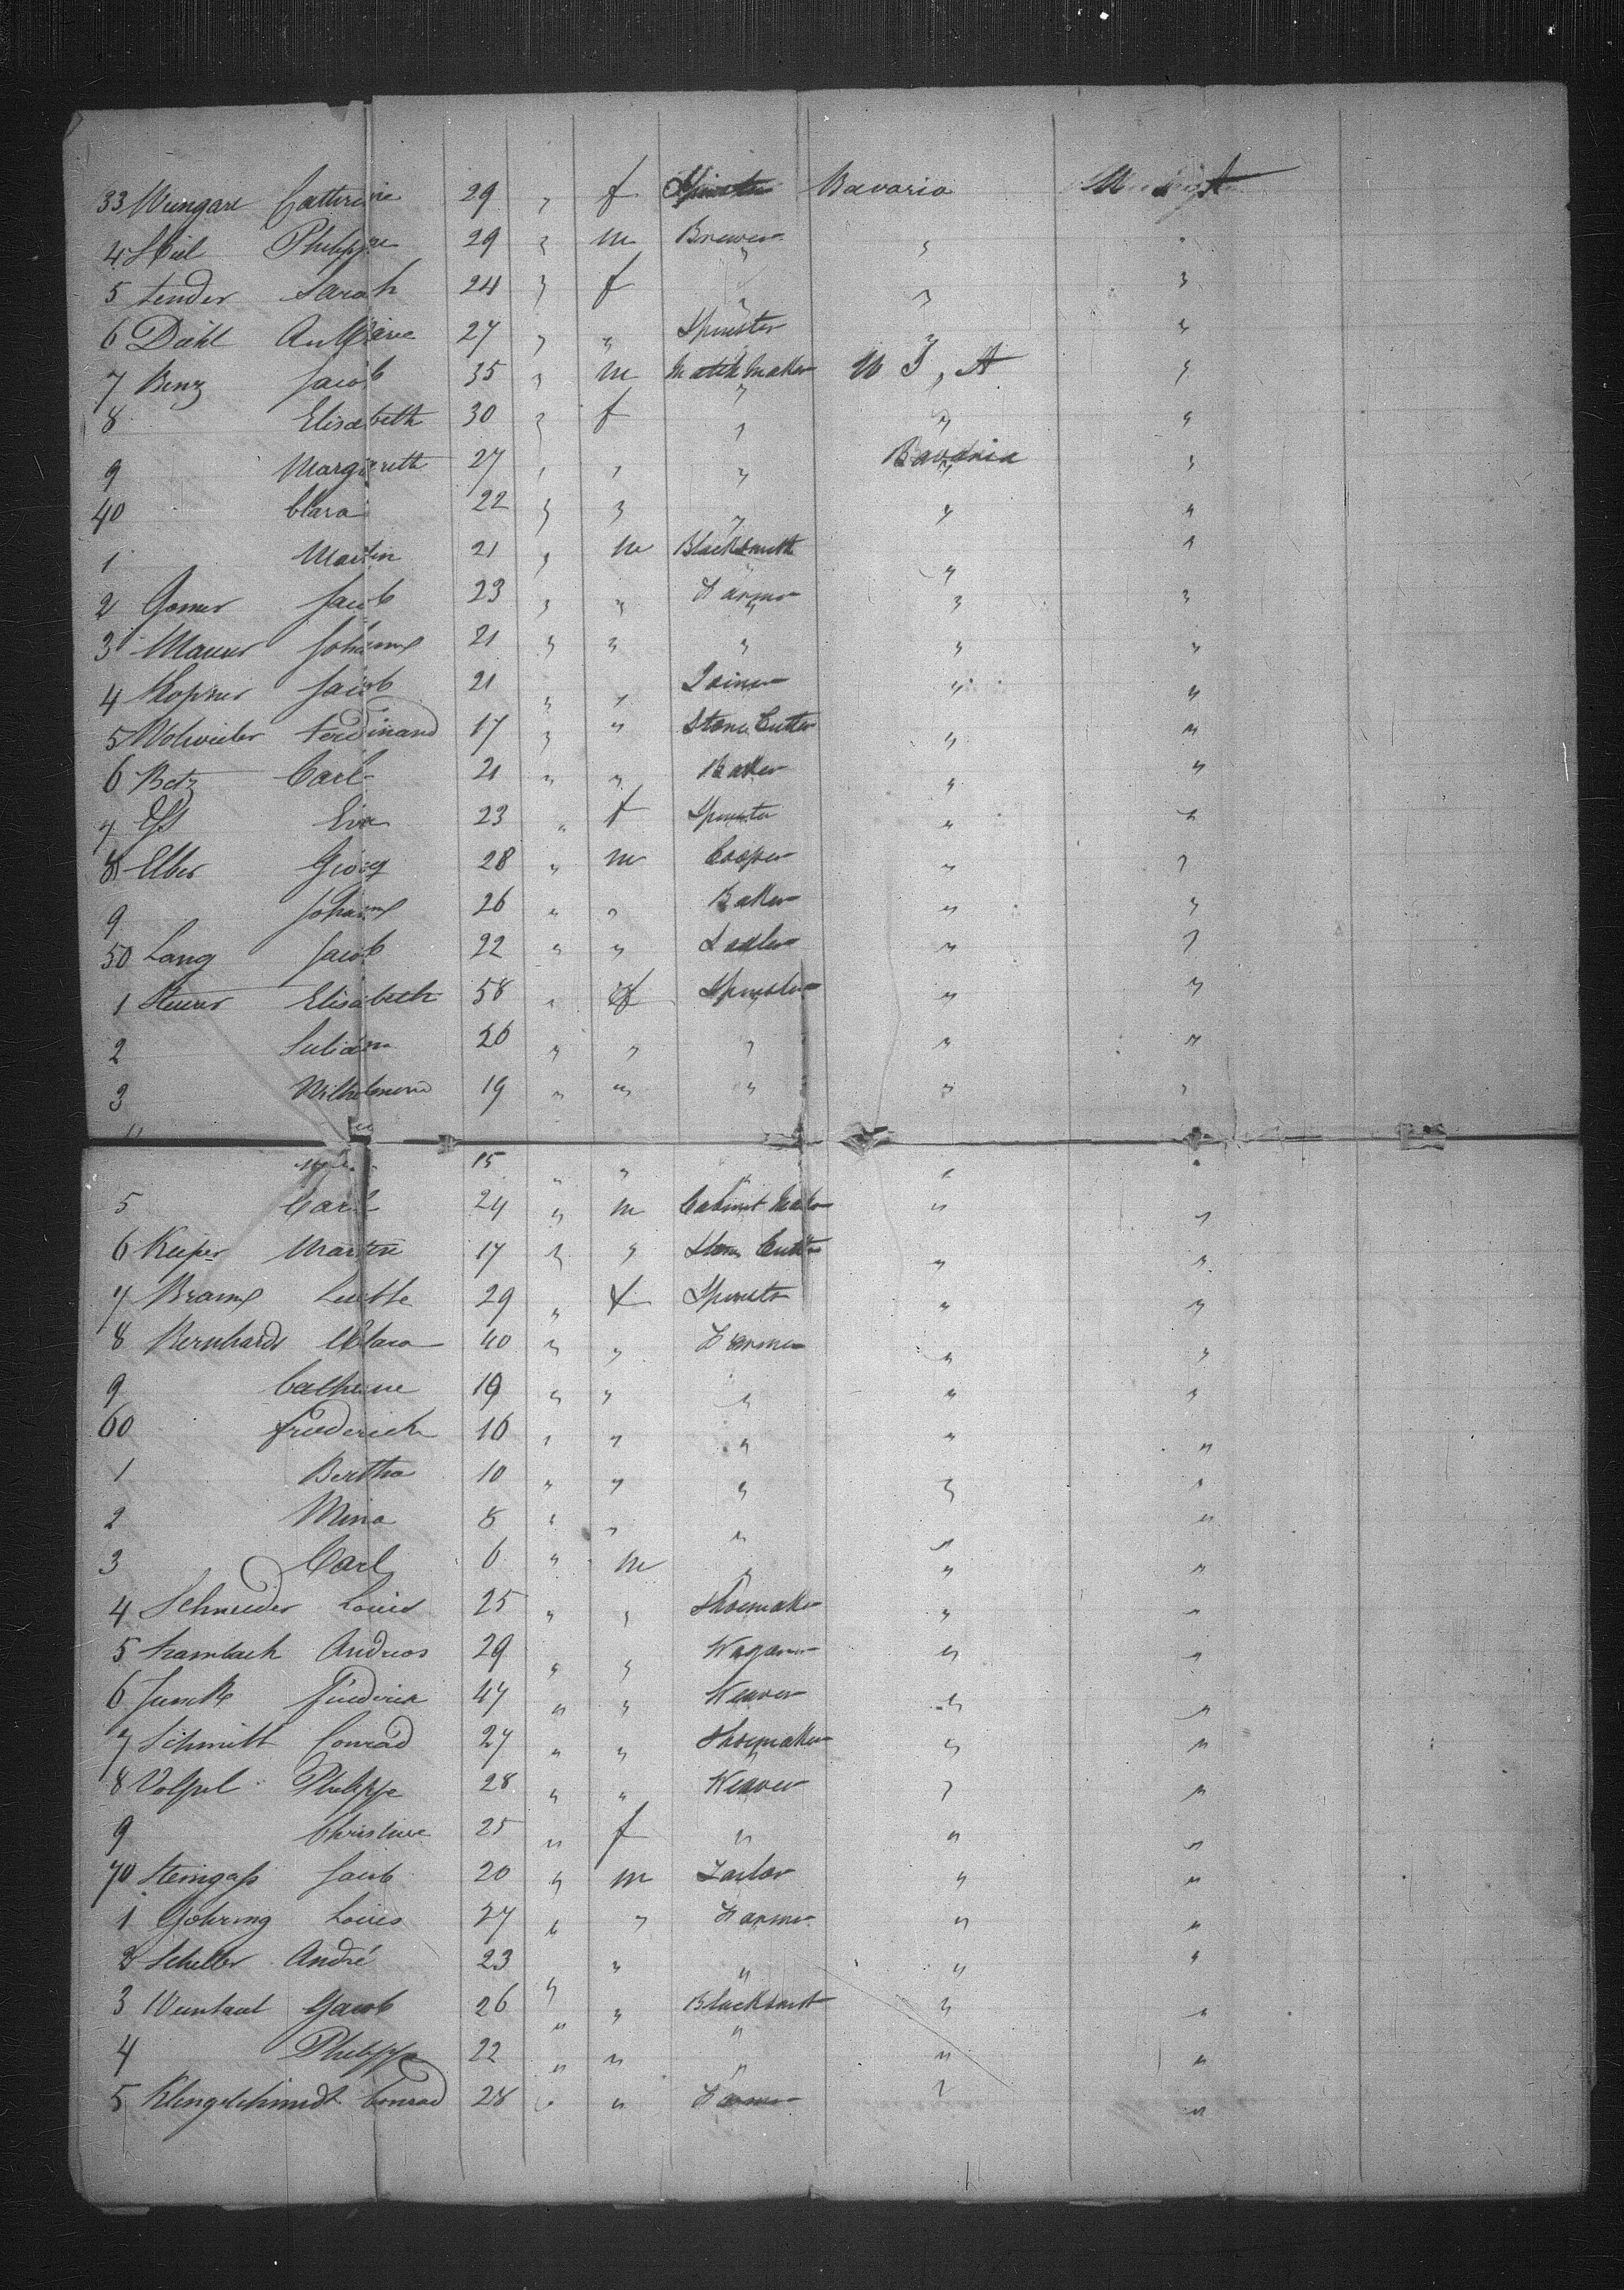 33 Weingart Catherine 29 " f Spinster Bavaria
4 Philippe 29 " m Brewer " "
5 Sarah 24 " f " " "
6 Dahl 27 " " Spinster " "
7 Benz Jacob 35 " m Watch Maker U S, A "
8 Elisabeth 30 " f " " "
9 Margareth 27 " " " Bavaria "
40 Clara 22 " " " " "
1 Martin 21 " m Blacksmith " "
2 Jacob 23 " " Farmer " "
3 Maurer Johann 21 " " " " "
4 Jacob 21 " " Joiner " "
5 Wolweiler Ferdinand 17 " " Stone Cutter " "
6 Betz Carl 21 " " Baker " "
7 Eva 23 " f Spinster " "
8 Elber Georg 28 " m Cooper " "
9 Johann 26 " " Baker " "
50 Lang Jacob 22 " " " "
1 Elisabeth 58 " f Spinster " "
2 26 " " " " "
3 19 " " " " "
15 " " " " "
5 Carl 24 " m Cabinet Maker " "
6 Keiper Martin 17 " " Stone Cutter " "
7 29 " f Spinster " "
8 Bernhardt Clara 40 " " Farmer " "
9 Catherine 19 " " " " "
60 Friederich 16 " " " " "
1 Bertha 10 " " " " "
2 Mina 8 " " " " "
3 Carl 6 " m " " "
4 Schneider Louis 25 " " Shoemaker " "
5 Andreas 29 " " " "
6 Friedrich 47 " " Weaver " "
7 Schmitt Conrad 27 " " Shoemaker " "
8 Volpel Philippe 28 " " Weaver " "
9 Christine 25 " f " " "
70 Steingass Jacob 20 " m Tailor " "
1 Göhring Louis 27 " " Farmer " "
2 Scheller André 23 " " " " "
3 Jacob 26 " " Blacksmith " "
4 Philippe 22 " " " " "
5 Klingelschmidt Conrad 28 " " Farmer " "